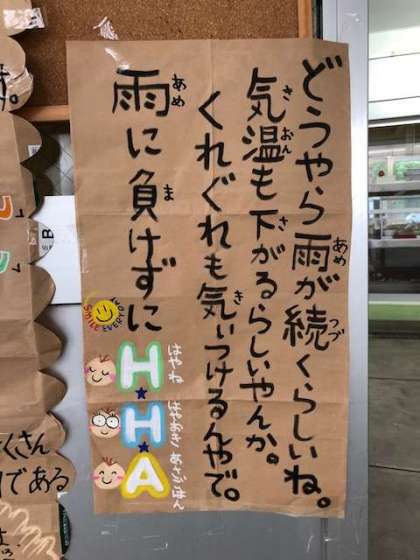 どうやら雨が続くらしいね。
気温も下がるらしいやんか。
くれぐれも気ぃつけるんやで。
雨に負けずに
SMILE EVERYDAY
H★H★A
はやね
はやおき
あさごはん
あめ
つづ
きおん
さ
き
あめ
ま
くさん
である